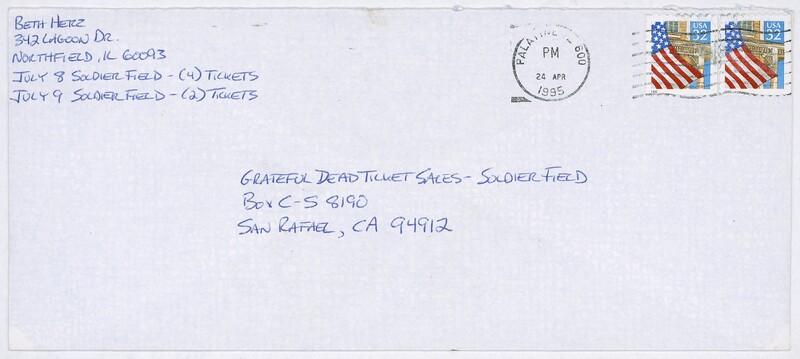 BETH HERZ
342 LAGOON DR.
NORTHFIELD, IL 60093
JULY 8 SOLDIER FIELD - (4) TICKETS
JULY 9 SOLDIER FIELD - (2) TICKETS
PALATINE IL 600
PM
24 APR
1995
USA
32
USA
32
GRATEFUL DEAD TICKET SALES - SOLDIER FIELD
BOX C-S 8190
SAN RAFAEL, CA 94912